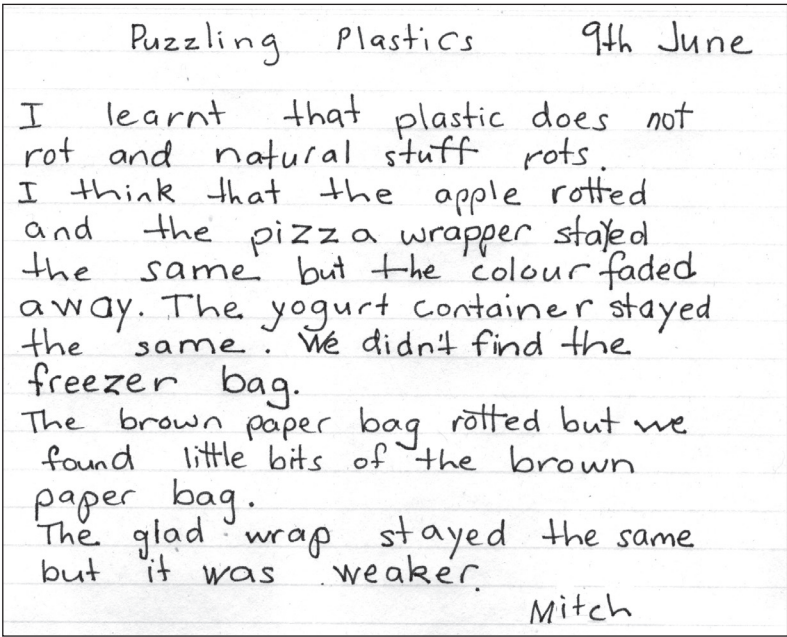 Puzzling Plastics 9th June
I learnt that plastic does not
rot and natural stuff rots.
I think that the apple rotted
and the pizza wrapper stayed
the same but the colour faded
away. The yogurt container stayed
the same. We didn't find the
freezer bag.
The brown paper bag rotted but we
found little bits of the brown
paper bag.
The glad wrap stayed the same
but it was weaker.
Mitch